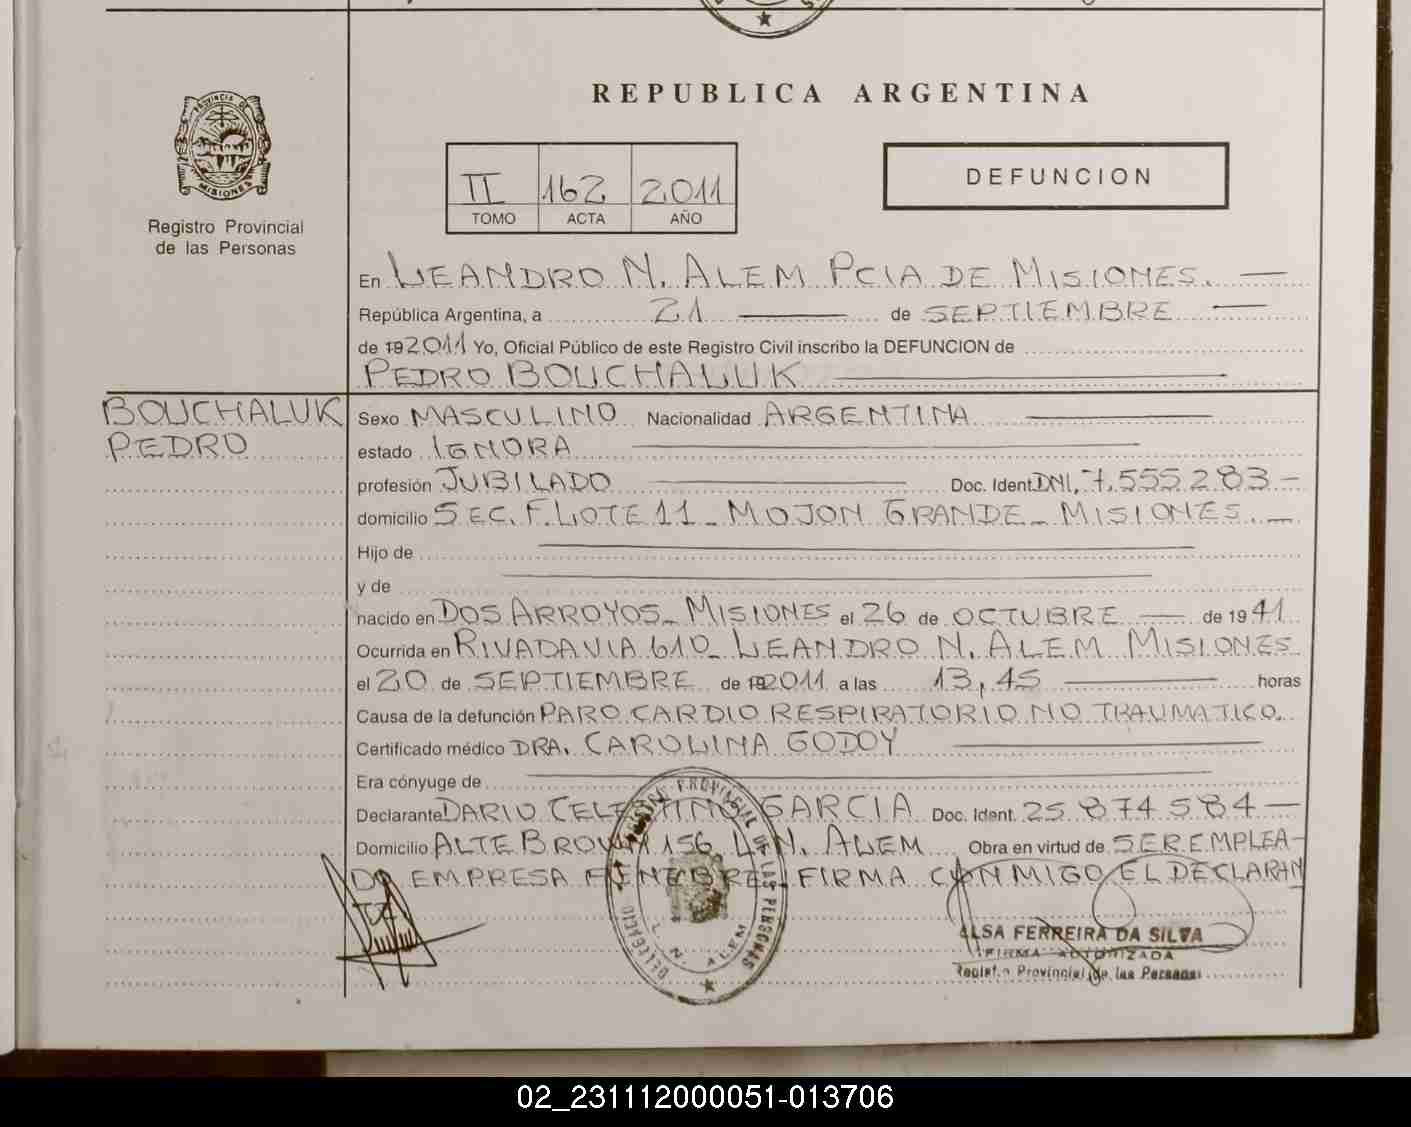 REPUBLICA ARGENTINA
PROVINCIA DE
MISIONES
Registro Provincial
de las Personas
II 162 2011
TOMO ACTA AÑO
DEFUNCION
En LEANDRO N. ALEM PCIA DE MISIONES.
República Argentina, a 21 de SEPTIEMBRE
de 192011 Yo, Oficial Público de este Registro Civil inscribo la DEFUNCION de
PEDRO BOUCHALUK
BOUCHALUK
PEDRO
Sexo MASCULINO Nacionalidad ARGENTINA
estado IGNORA
profesión JUBILADO Doc. Ident. DNI. 7.555.283
domicilio SEC. F. LOTE 11 - MOJON GRANDE - MISIONES.
Hijo de
y de
nacido en DOS ARROYOS - MISIONES el 26 de OCTUBRE de 1941
Ocurrida en RIVADAVIA 610 - LEANDRO N. ALEM MISIONES
el 20 de SEPTIEMBRE de 192011 a las 13,45 horas
Causa de la defunción PARO CARDIO RESPIRATORIO NO TRAUMATICO.
Certificado médico DRA. CAROLINA GODOY
Era cónyuge de
Declarante DARIO CELESTINO GARCIA Doc. Ident. 25.874.584
Domicilio ALTE BROWN 156 L.N. ALEM Obra en virtud de SER EMPLEA-
DO EMPRESA FUNEBRE FIRMA CONMIGO EL DECLARAN
TE
PROVINCIAL DE LAS PERSONAS
L. N. ALEM
ELSA FERREIRA DA SILVA
FIRMA AUTORIZADA
Registro Provincial de las Personas
02_231112000051-013706